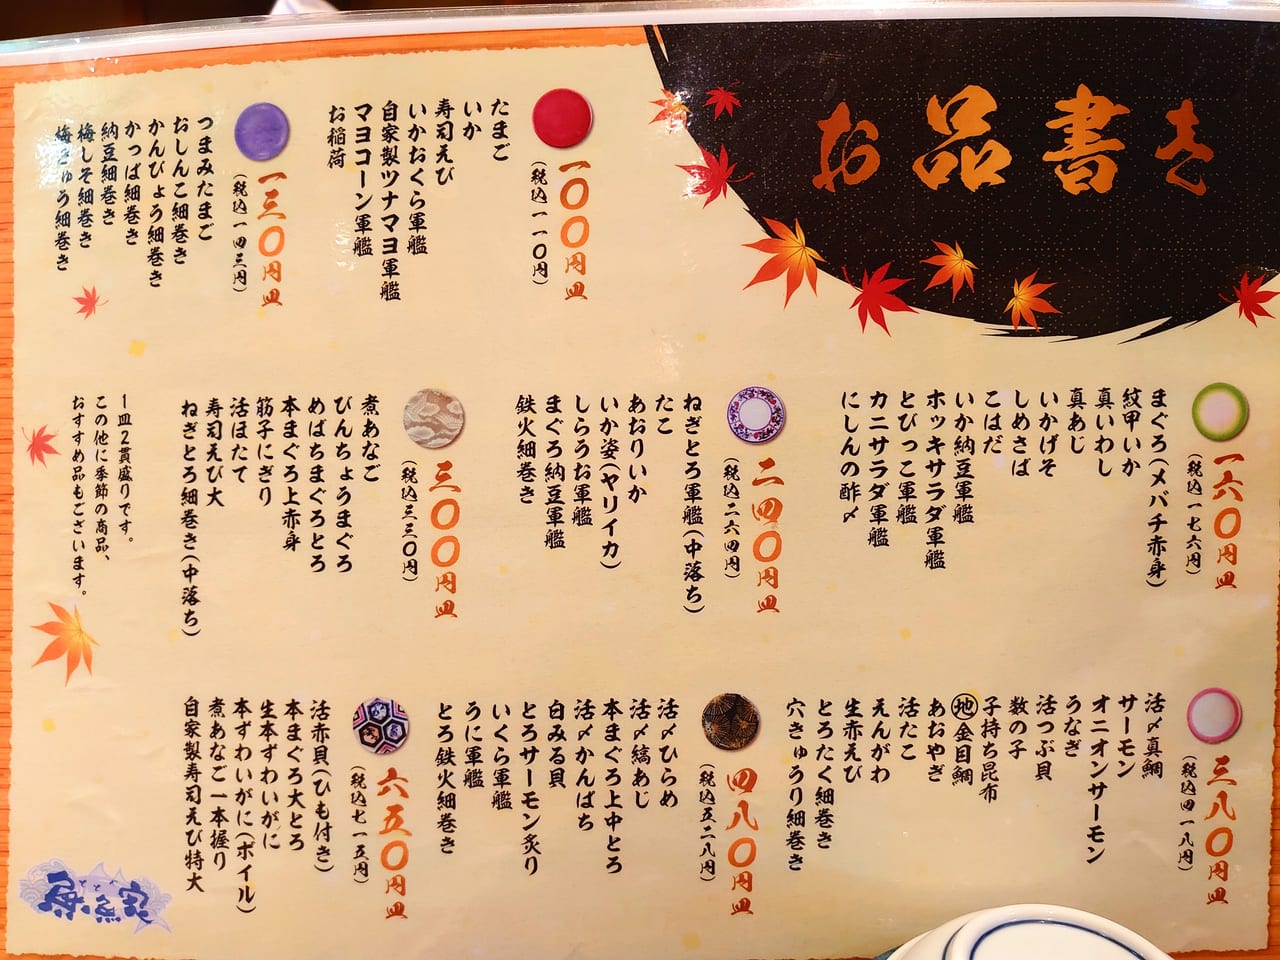 お品書き
一〇〇円皿
(税込一一〇円)
たまご
いか
寿司えび
いかおくら軍艦
自家製ツナマヨ軍艦
マヨコーン軍艦
お稲荷
一三〇円皿
(税込一四三円)
つまみたまご
おしんこ細巻き
かんぴょう細巻き
かっぱ細巻き
納豆細巻き
梅しそ細巻き
梅きゅう細巻き
一六〇円皿
(税込一七六円)
まぐろ(メバチ赤身)
紋甲いか
真いわし
真あじ
いかげそ
しめさば
こはだ
いか納豆軍艦
ホッキサラダ軍艦
とびっこ軍艦
カニサラダ軍艦
にしんの酢〆
二四〇円皿
(税込二六四円)
ねぎとろ軍艦(中落ち)
たこ
あおりいか
いか姿(ヤリイカ)
しらうお軍艦
まぐろ納豆軍艦
鉄火細巻き
三〇〇円皿
(税込三三〇円)
煮あなご
びんちょうまぐろ
めばちまぐろとろ
本まぐろ上赤身
筋子にぎり
活ほたて
寿司えび大
ねぎとろ細巻き(中落ち)
1皿2貫盛りです。
この他に季節の商品、
おすすめ品もございます。
三八〇円皿
(税込四一八円)
活〆真鯛
サーモン
オニオンサーモン
うなぎ
活つぶ貝
数の子
子持ち昆布
㊞金目鯛
あおやぎ
活たこ
えんがわ
生赤えび
とろたく細巻き
穴きゅうり細巻き
四八〇円皿
(税込五二八円)
活〆ひらめ
活〆縞あじ
本まぐろ上中とろ
活〆かんぱち
白みる貝
とろサーモン炙り
いくら軍艦
うに軍艦
とろ鉄火細巻き
六五〇円皿
(税込七一五円)
活赤貝(ひも付き)
本まぐろ大とろ
生本ずわいがに
本ずわいがに(ボイル)
煮あなご一本握り
自家製寿司えび特大
魚魚家